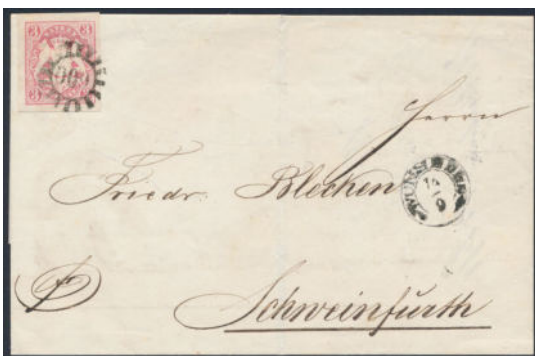 3 3
600
3 3
Herrn
Friedr. Blecken
WUNSIEDEL
19
9
fr
Schweinfurth